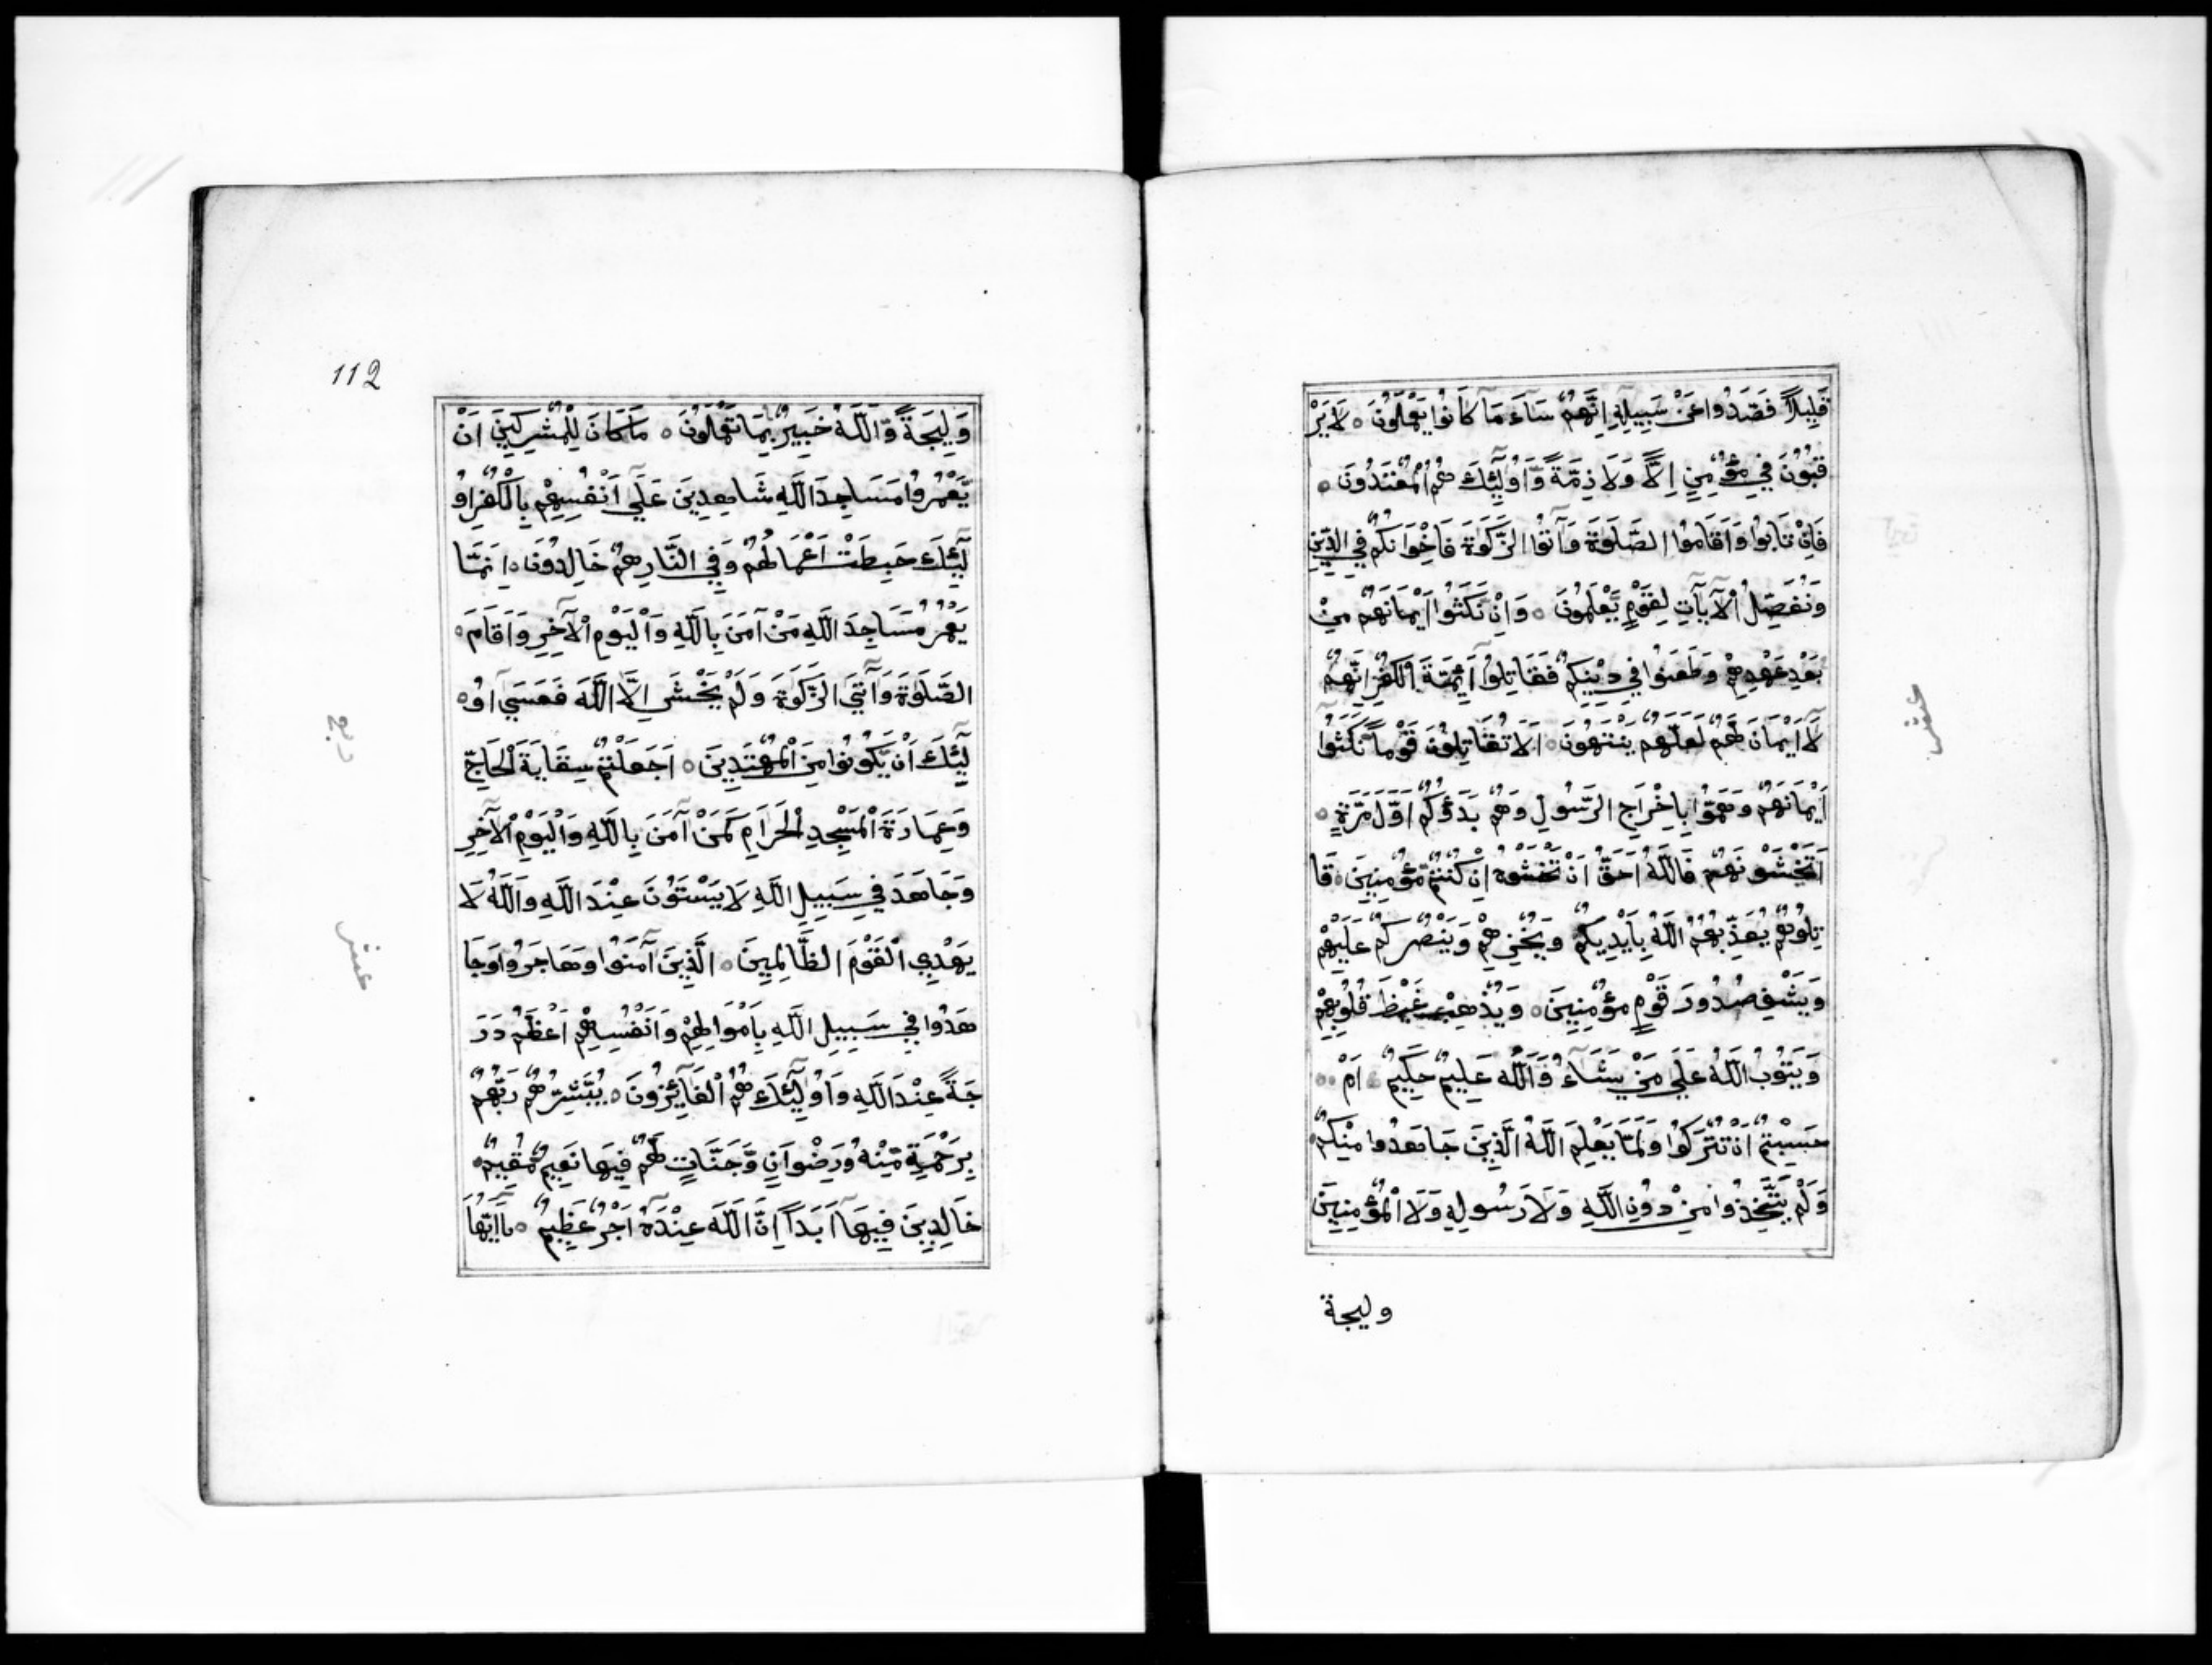 قَلِيلاً فَصَدُّوا عَنْ سَبِيلِهِ اِنَّهُمْ سَآءَ مَا كَانُوا يَعْمَلُونَ ○ لَا يَرْ
قُبُونَ فِي مُؤْمِنٍ اِلًّا وَلَا ذِمَّةً وَّاُولٰٓئِكَ هُمُ الْمُعْتَدُونَ ○
فَاِنْ تَابُوا وَاَقَامُوا الصَّلَوةَ وَآتَوُا الزَّكَوةَ فَاِخْوَانُكُمْ فِي الدِّينِ
وَنُفَصِّلُ الْآيَاتِ لِقَوْمٍ يَّعْلَمُونَ ○ وَاِنْ نَكَثُوا اَيْمَانَهُمْ مِنْ
بَعْدِ عَهْدِهِمْ وَطَعَنُوا فِي دِيْنِكُمْ فَقَاتِلُوا اَئِمَّةَ الْكُفْرِ اِنَّهُمْ
لَآ اَيْمَانَ لَهُمْ لَعَلَّهُمْ يَنْتَهُونَ ○ اَلَا تُقَاتِلُونَ قَوْماً نَكَثُوآ
اَيْمَانَهُمْ وَهَمُّوا بِاِخْرَاجِ الرَّسُولِ وَهُمْ بَدَؤُكُمْ اَوَّلَ مَرَّةٍ ○
اَتَخْشَوْنَهُمْ فَاللَّهُ اَحَقُّ اَنْ تَخْشَوْهُ اِنْ كُنْتُمْ مُؤْمِنِينَ ○ قَا
تِلُوهُمْ يُعَذِّبْهُمُ اللَّهُ بِاَيْدِيكُمْ وَيُخْزِهِمْ وَيَنْصُرْكُمْ عَلَيْهِمْ
وَيَشْفِ صُدُورَ قَوْمٍ مُؤْمِنِينَ ○ وَيُذْهِبْ غَيْظَ قُلُوبِهِمْ
وَيَتُوبُ اللَّهُ عَلَى مَنْ يَشَآءُ وَاللَّهُ عَلِيمٌ حَكِيمٌ ○ اَمْ ○○
حَسِبْتُمْ اَنْ تُتْرَكُوا وَلَمَّا يَعْلَمِ اللَّهُ الَّذِينَ جَاهَدُوا مِنْكُمْ
وَلَمْ يَتَّخِذُوا مِنْ دُونِ اللَّهِ وَلَا رَسُولِهِ وَلَا الْمُؤْمِنِينَ
وليجة
عشر
112
وَلِيجَةً وَّاللَّهُ خَبِيرٌ بِمَا تَعْمَلُونَ ○ مَا كَانَ لِلْمُشْرِكِينَ اَنْ
يَّعْمُرُوا مَسَاجِدَ اللَّهِ شَاهِدِينَ عَلَى اَنْفُسِهِمْ بِالْكُفْرِ اُو
لٰٓئِكَ حَبِطَتْ اَعْمَالُهُمْ وَفِي النَّارِ هُمْ خَالِدُونَ ○ اِنَّمَا
يَعْمُرُ مَسَاجِدَ اللَّهِ مَنْ آمَنَ بِاللَّهِ وَالْيَوْمِ الْآخِرِ وَاَقَامَ ○
الصَّلَوةَ وَآتَى الزَّكَوةَ وَلَمْ يَخْشَ اِلَّا اللَّهَ فَعَسَى اُو ○
لٰٓئِكَ اَنْ يَّكُونُوا مِنَ الْمُهْتَدِينَ ○ اَجَعَلْتُمْ سِقَايَةَ الْحَاجِّ
وَعِمَارَةَ الْمَسْجِدِ الْحَرَامِ كَمَنْ آمَنَ بِاللَّهِ وَالْيَوْمِ الْآخِرِ
وَجَاهَدَ فِي سَبِيلِ اللَّهِ لَا يَسْتَوُنَ عِنْدَ اللَّهِ وَاللَّهُ لَا
يَهْدِي الْقَوْمَ الظَّالِمِينَ ○ الَّذِينَ آمَنُوا وَهَاجَرُوا وَجَا
هَدُوا فِي سَبِيلِ اللَّهِ بِاَمْوَالِهِمْ وَاَنْفُسِهِمْ اَعْظَمُ دَرَ
جَةً عِنْدَ اللَّهِ وَاُولٰٓئِكَ هُمُ الْفَآئِزُونَ ○ يُبَشِّرُهُمْ رَبُّهُمْ
بِرَحْمَةٍ مِّنْهُ وَرِضْوَانٍ وَّجَنَّاتٍ لَّهُمْ فِيهَا نَعِيمٌ مُقِيمٌ ○
خَالِدِينَ فِيهَآ اَبَداً اِنَّ اللَّهَ عِنْدَهُ اَجْرٌ عَظِيمٌ ○ يَآ اَيُّهَا
ربع
عشر